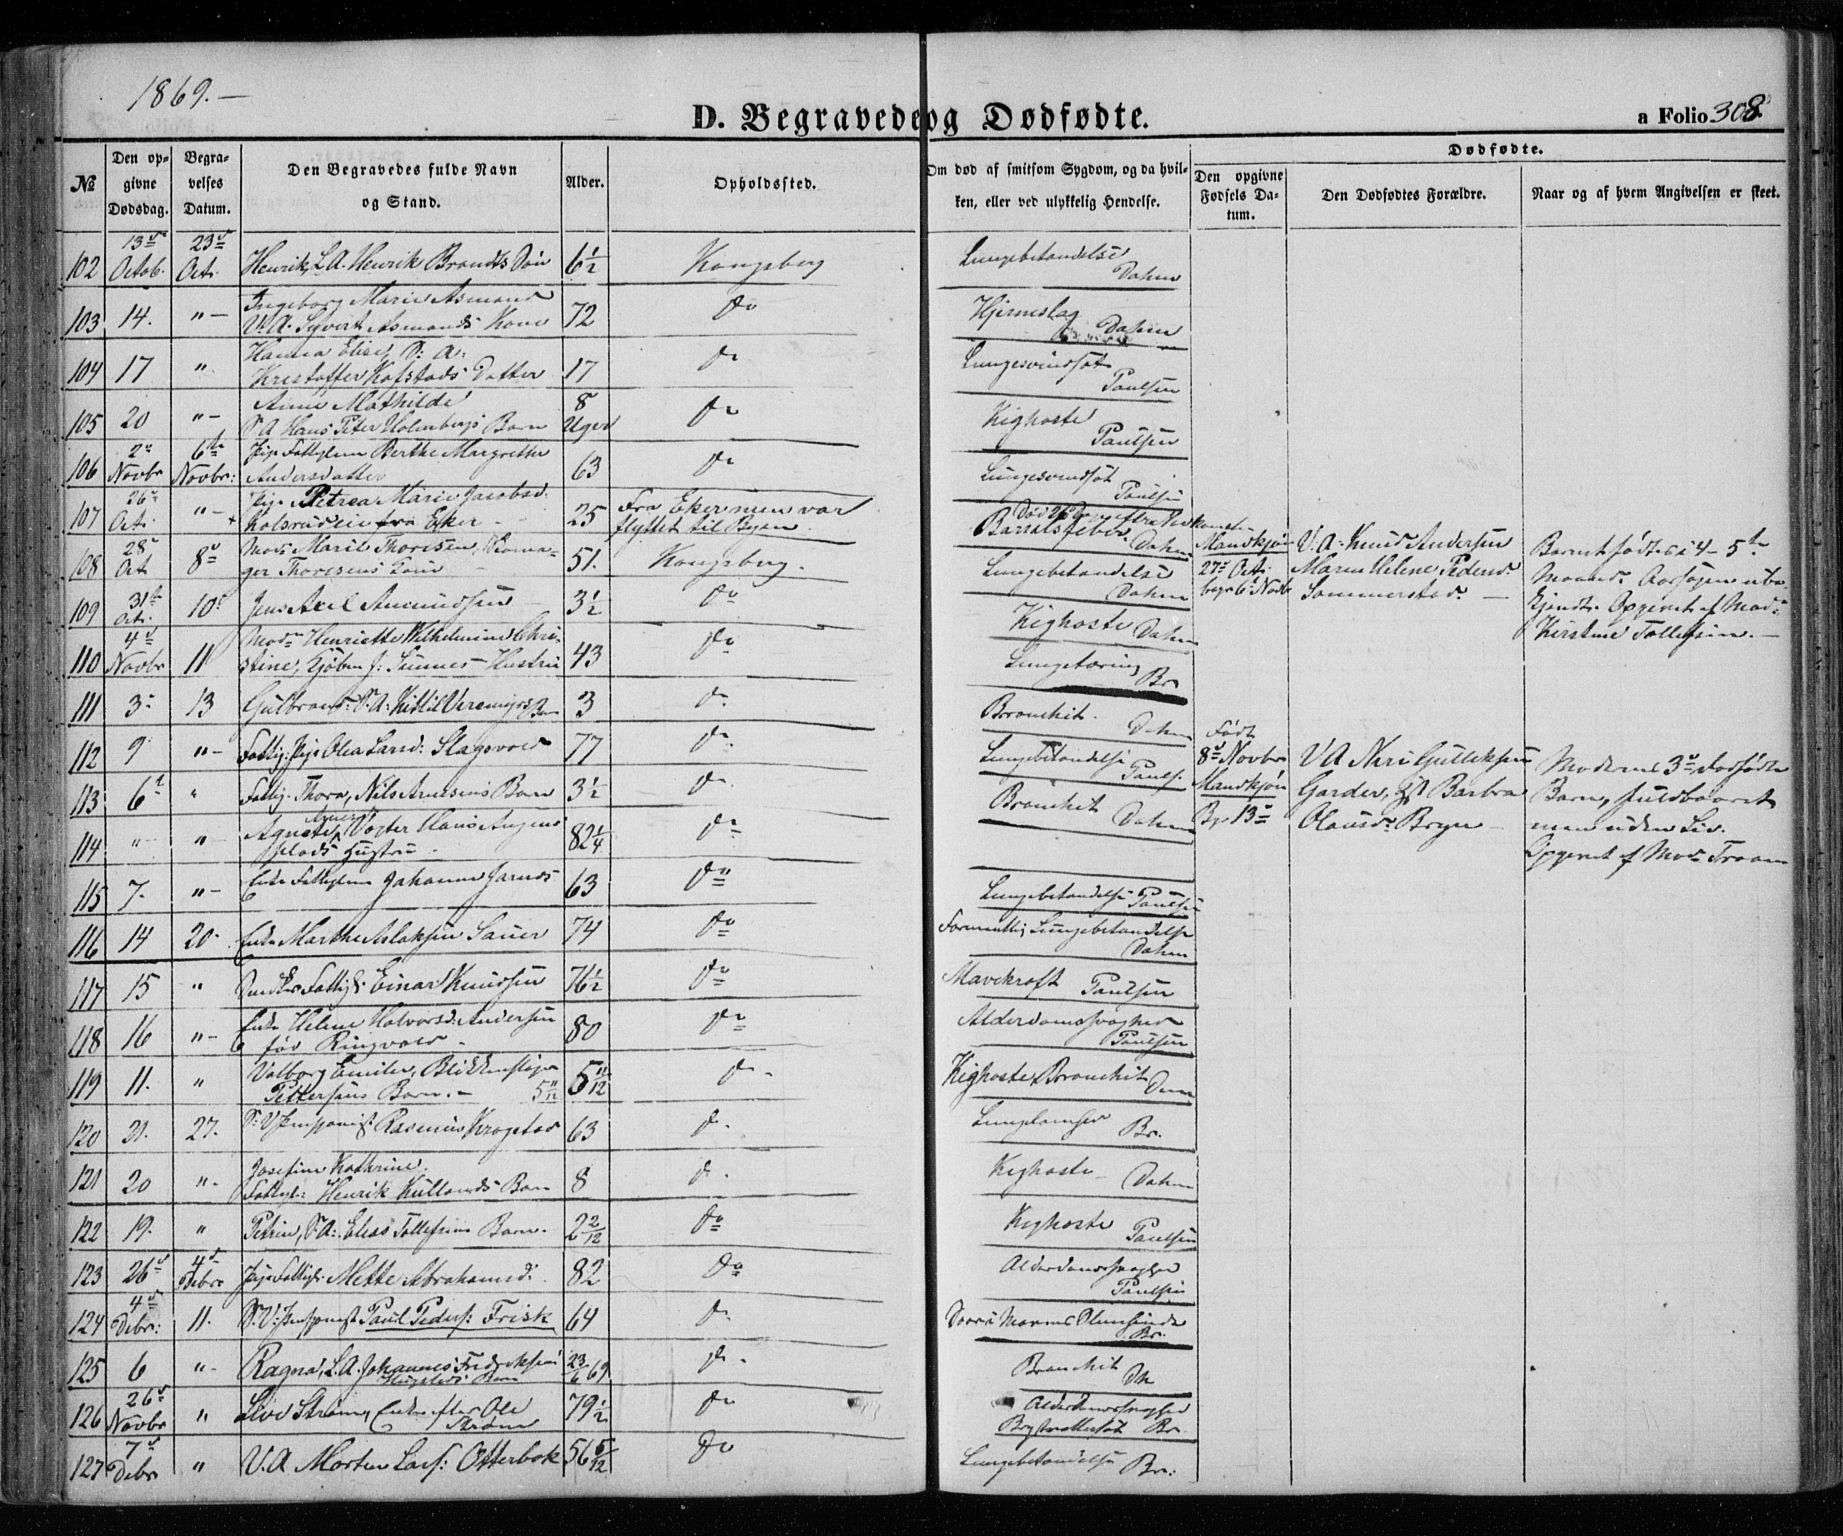 1869.—
D. Begravede og Dødfødte.
a Folio 308
№
Den opgivne Dødsdag.
Begravelses Datum.
Den Begravedes fulde Navn og Stand.
Alder.
Opholdssted.
Om død af smitsom Sygdom, og da hvilken, eller ved ulykkelig Hendelse.
Dødfødte.
Den opgivne Fødsels Datum.
Den Dødfødtes Forældre.
Naar og af hvem Angivelsen er skeet.
102 13de Octob. 23de Oct. Henrik, L.A. Henrik Brandts Søn 6½ Kongsberg Lungebetændelse Dahm
103 14. "– Ingeborg Marie Asmund V.A. Syvert Asmunds Kone 72 do Hjerneslag Dahm
104 17 " Hanna Elise, S: A: Kristoffer Kofstads Datter 17 do Lungesvindsot Paulsen
105 20 "– Anne Mathilde S.A. Hans Peter Holmbergs Barn 8 Uger do Kighoste Paulsen
106 2den Novbr 6te Novbr: Pige Fattiglem Berthe Margrethe Andersdatter 63 do Lungesvindsot Paulsen
107 26 Oct. "– Pige Petrea Marie Jacobsd. Kolsrudeie fra Eker 25 Fra Eker men var flyttet til Byen. Barselsfeber Dahm
108 28 Oct 8de Mad: Marie Thoresen, Skomager Thoresens Kone 51. Kongsberg. Lungebetændelse Dahm
109 31te Oct. 10de Jens Axel Amundsen 3½ do Kighoste Dahm
110 4de Novbr 11 Mad: Henriette Wilhelmine Christine, Kjøbm J: Sunnes Hustru 43 do Lungetæring Br
111 3de 13 Gulbrand S.A. Kittil Veremyrs Barn 3 do Bronchit. Dahm
112 9 "– Fattig: Pige Olea Larsd: Slagsvold 77 do Lungebetændelse Paulsen
113 6te " Fattig. Thora, Nils Arnesens Barn 3½ do Bronchit Dahm
114 "– " Agnete, Vogter Hans Hustru 82¼ do
115 7. "– Enke Fattiglem Johanne 63 do Lungebetændelse Paulsen
116 14 20 Enke Marthe Aslaksen Sauer 74 do Formentlig Lungebetændelse Dahm
117 15 " Fattigl: Einar Knudsen 76½ do Mavekræft Paulsen
118 16 "– Enke Helene Halvorsd: Andersen før Ringvold 80 do Alderdomssvaghed Paulsen
119 11. " Valborg Emilie, Blikkenslager Pettersens Barn.– 5 11/12 5 11/12 do Kighoste Bronchit Dm
120 21. 27. S: V: Pensionist Rasmus Krogstad 63 do Br.
121 20 "– Josefine Kathrine. Fattigl: Henrik Kullands Barn 8 do Kighoste Dahm
122 19. " Petrine, S.A: Elias Tollefsens Barn. 2 2/12 do Kighoste Paulsen
123 26de 4de Debr Pige Fattigl: Mette Abrahamsd: 82 do Alderdomssvaghed Paulsen
124 4de Debr: 11. S: V: Pensionist Paul Peders: Frisk 64 do Br.
125 6 "– Ragna, L.A. Johannes Fredriksens Barn 23/6 69 do Bronchit Dh
126 26de Novbr " Live Strøm, Enke efter Ole Strøm 79½ do Alderdomssvaghed Brystvattersot Br
127 7de Debr " V.A. Morten Lars: Otterbæk 56 5/12 do Lungebetændelse Br:
Mandkjøn 27de Oct: begr. 6te Novbr
V: A: Knud Andersen Maren Helene Pedersd. Sommerstad. —
Barnet født i 4–5te Maaned. Aarsagen ubekjendt. Opgivet af Mad: Kirstine Tollefsen. —
Født 8de Novbr Mandkjøn Bg. 13de
V A Nari Gulleksen Garder, og Barbra Olausd: Bryn
Moderens 3de dødfødte Barn, fuldbaaret men uden Liv. Opgivet af Mad: Traaen